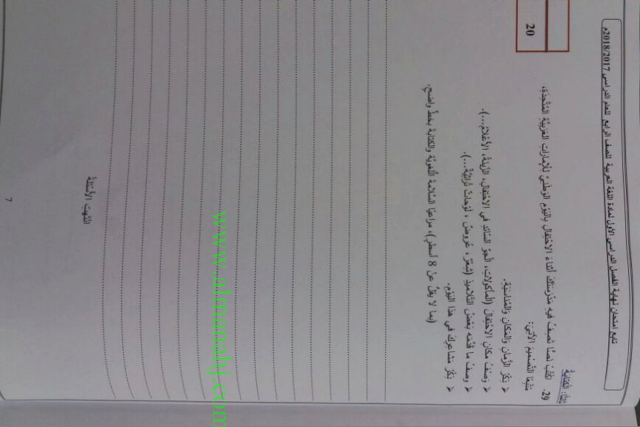 تابع امتحان نهاية الفصل الدراسي الأول لمادة اللغة العربية للصف الرابع للعام الدراسي 2018/2017م
20
29- اكتُبْ نصًّا تصِفُ فيهِ مَدْرَسَتَكَ أثناءَ الاحتِفالِ بِاليَوْمِ الوطنيّ للإماراتِ العَرَبِيَّةِ المُتَّحِدَةِ،
مُتَّبِعًا التَّصْميمَ الآتِيَ:
➢ ذِكْرُ الزَّمانِ والمَكانِ والمُناسَبَةِ.
➢ وَصْفُ مكانِ الاحْتِفالِ (المأكولات، الجوّ السّائد في الاحتِفال، الزّينة، الأعْلام...).
➢ وصفُ ما قدَّمَه بَعْضُ التّلاميذِ (شِعْرٌ، عُروضٌ، لَوْحاتٌ تُراثِيَّةٌ...).
➢ ذِكْرُ مَشاعِرِكَ في هذا اليَوْمِ.
(بما لا يقلُّ عنْ 8 أسطرٍ)، مراعيًا السَّلامةَ اللُّغَويَّةَ والكتابةَ بخطٍّ واضحٍ.
انتهت الأسئلة
7
www.almanahj.com